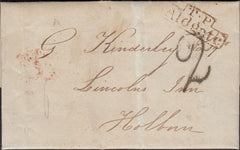 T.P.
Aldgate
G Kinderley
2
Lincolns Inn
Holborn